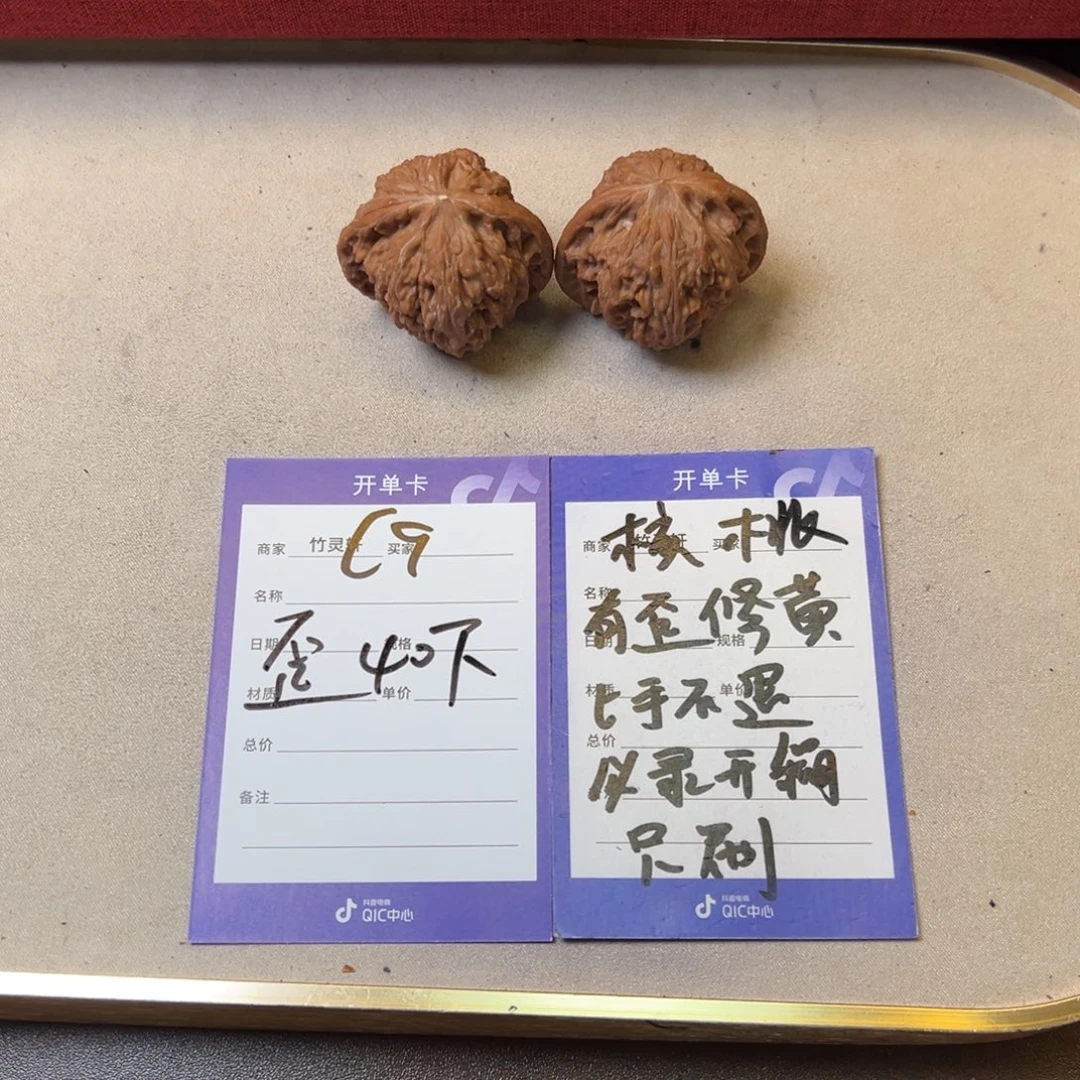 开单卡
C9
商家 竹灵轩 买家
名称
歪40下
日期 规格
材质 单价
总价
备注
抖音电商
QIC中心
开单卡
核桃
商家 买家
名称
有歪修黄
日期 规格
上手不退
材质 单价
总价
必录开箱
只刷
抖音电商
QIC中心